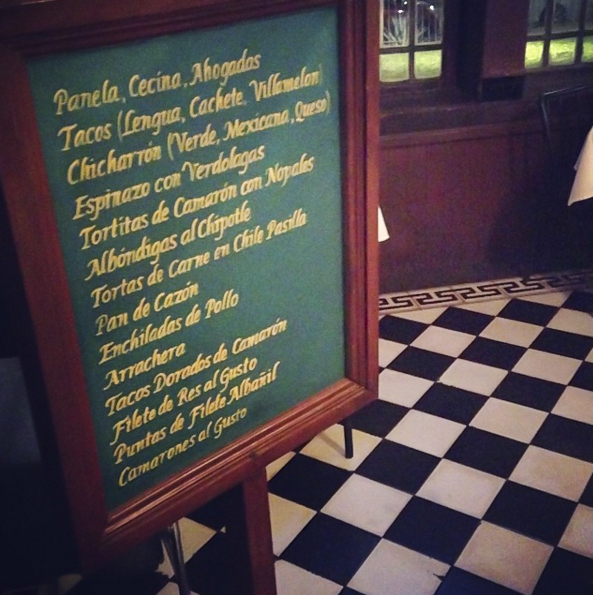 Panela, Cecina, Ahogadas
Tacos (Lengua, Cachete, Villamelon)
Chicharrón (Verde, Mexicana, Queso)
Espinazo con Verdolagas
Tortitas de Camarón con Nopales
Albóndigas al Chipotle
Tortas de Carne en Chile Pasilla
Pan de Cazón
Enchiladas de Pollo
Arrachera
Tacos Dorados de Camarón
Filete de Res al Gusto
Puntas de Filete Albañil
Camarones al Gusto